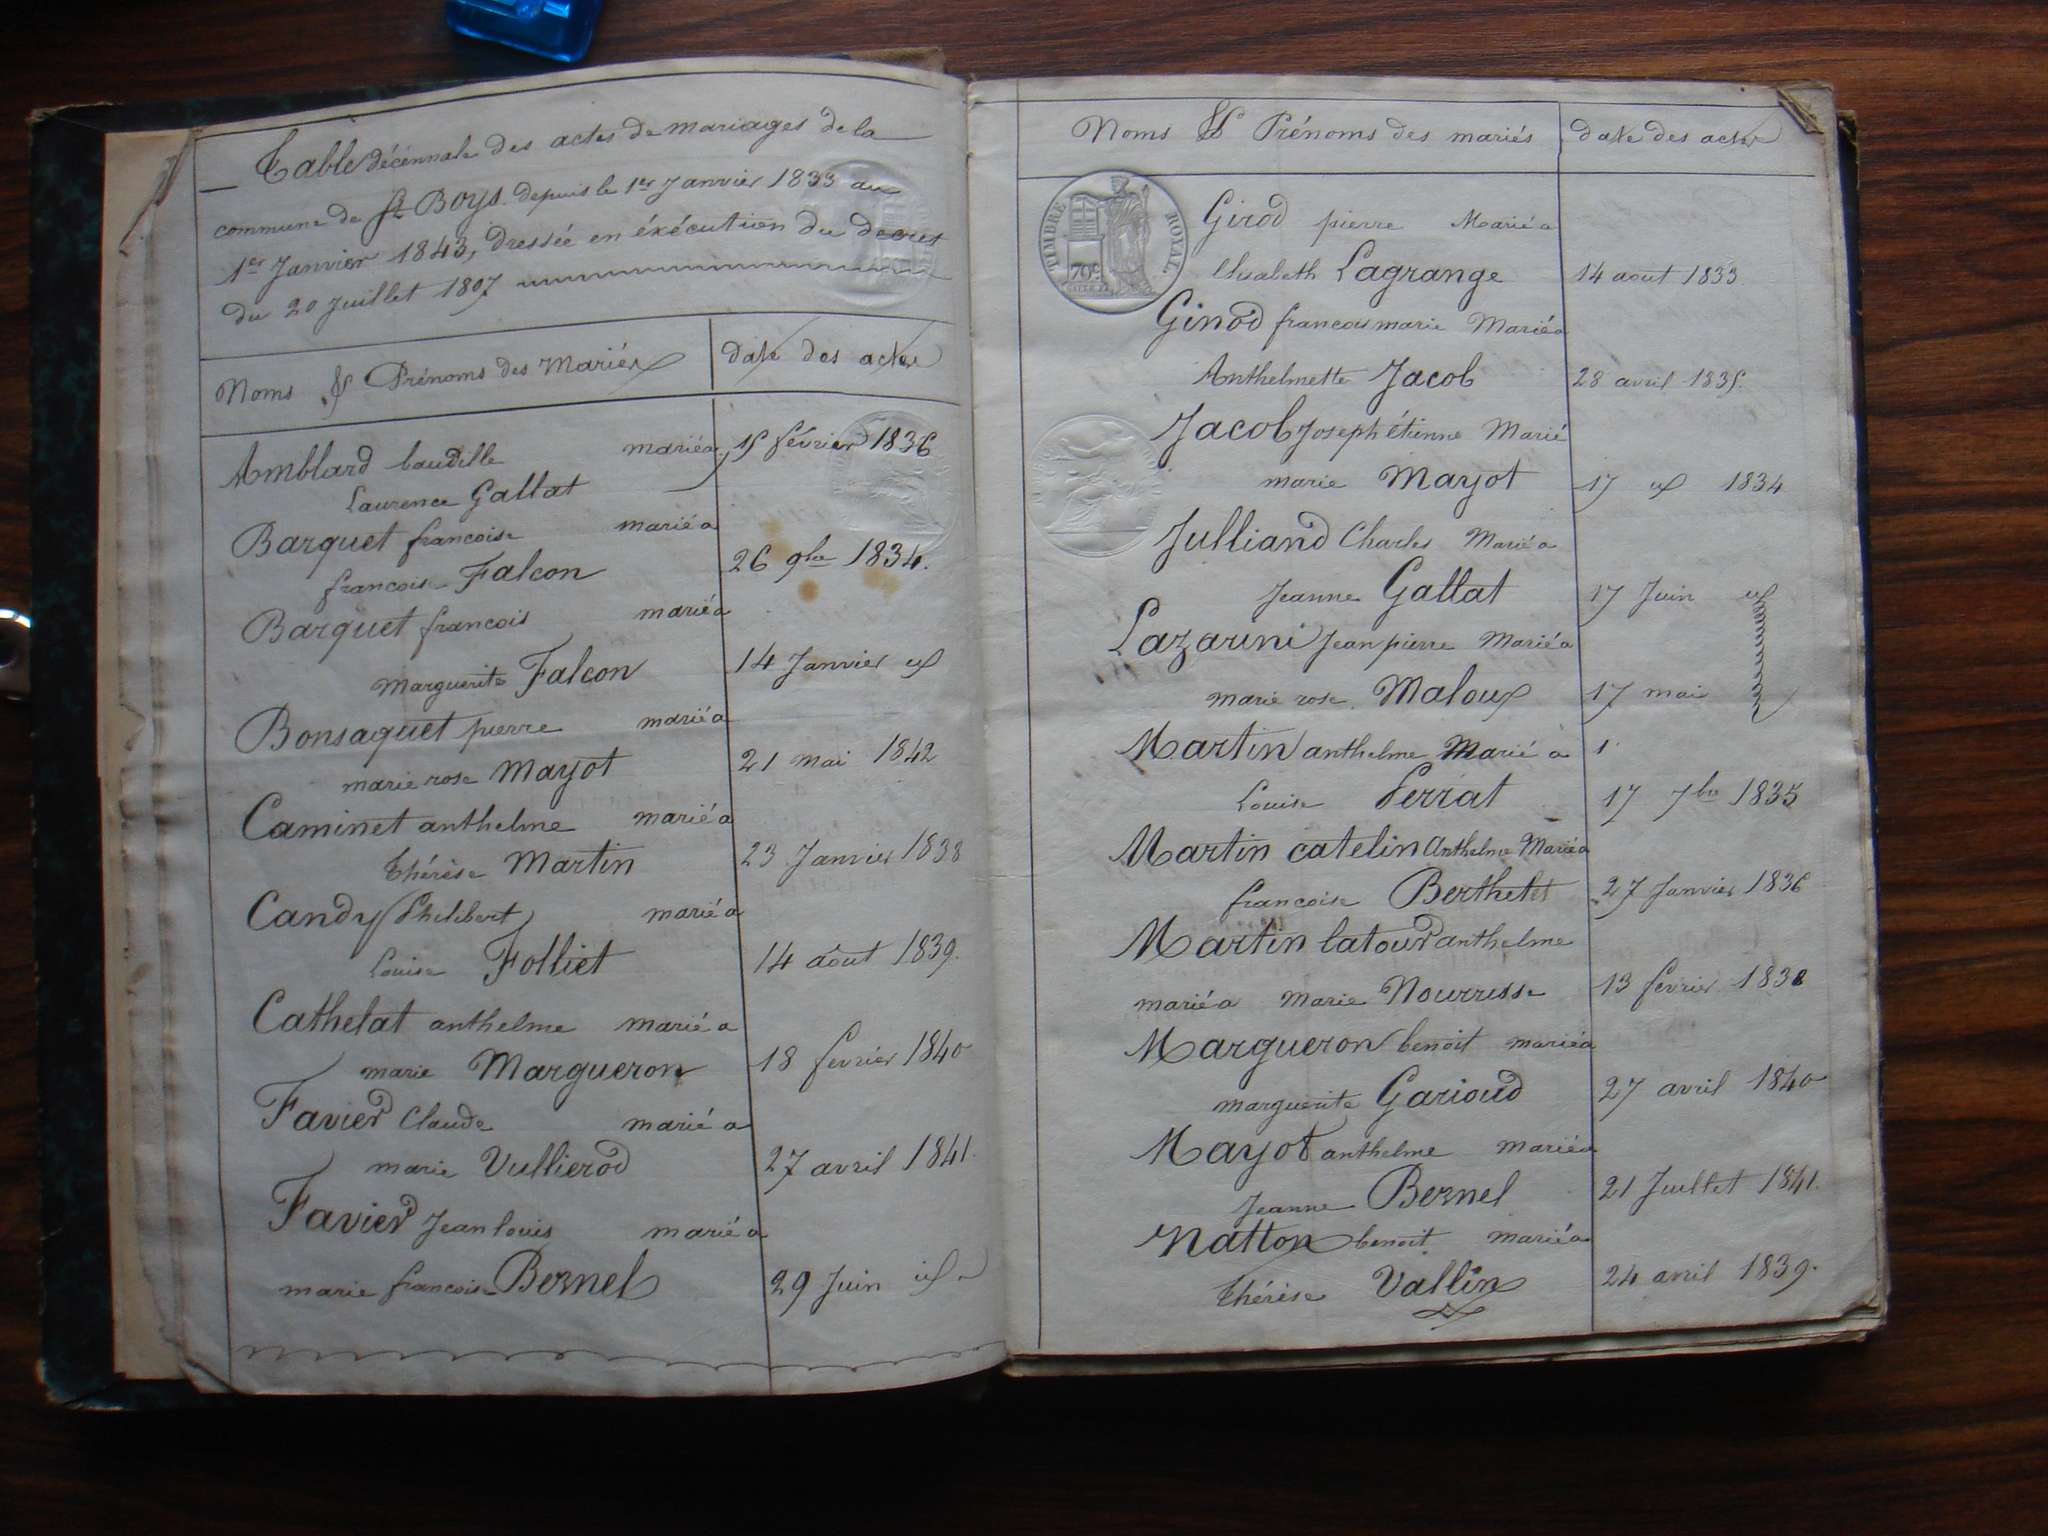 Table décennale des actes de mariages de la
commune de St Boys depuis le 1er Janvier 1833 au
1er Janvier 1843, dressée en éxécution du decret
du 20 Juillet 1807
Noms & Prénoms des Mariés date des actes
Amblard baudille marié a 15 février 1836
Laurence Gallat
Barquet francoise marié a
francoise Falcon 26 9bre 1834.
Barquet francois marié a
Marguerite Falcon 14 Janvier id
Bonsaquet pierre marié a
marie rose Mayot 21 mai 1842
Caminet anthelme marié a
thérèse Martin 23 Janvier 1838
Candy Philibert marié a
Louise Folliet 14 août 1839.
Cathelat anthelme marié a
marie Margueron 18 fevrier 1840
Favier Claude marié a
marie Vullierod 27 avril 1841.
Favier Jean louis marié a
marie francoise Bernel 29 Juin id
Noms & Prénoms des mariés date des actes
TIMBRE ROYAL
70c
Girod pierre Marié a
Elisabeth Lagrange 14 aout 1833
Ginod francois marie Marié a
Anthelmette Jacob 28 avril 1835.
Jacob Joseph étienne Marié
marie Mayot 17 id 1834
Julliand Charles Marié a
Jeanne Gallat 17 Juin id
Lazarini Jean pierre Marié a
marie rose Maloux 17 mai
Martin anthelme Marié à 1.
Louise Perrat 17 7bre 1835
Martin catelin Anthelme Marié a
francoise Berthelet 27 Janvier 1836
Martin latour anthelme
marié a Marie Nourrisse 13 fevrier 1838
Margueron benoit marié a
marguerite Garioud 27 avril 1840
Mayot anthelme marié a
Jeanne Bernel 21 Juillet 1841.
Natton benoit marié a
thérèse Vallin 24 avril 1839.